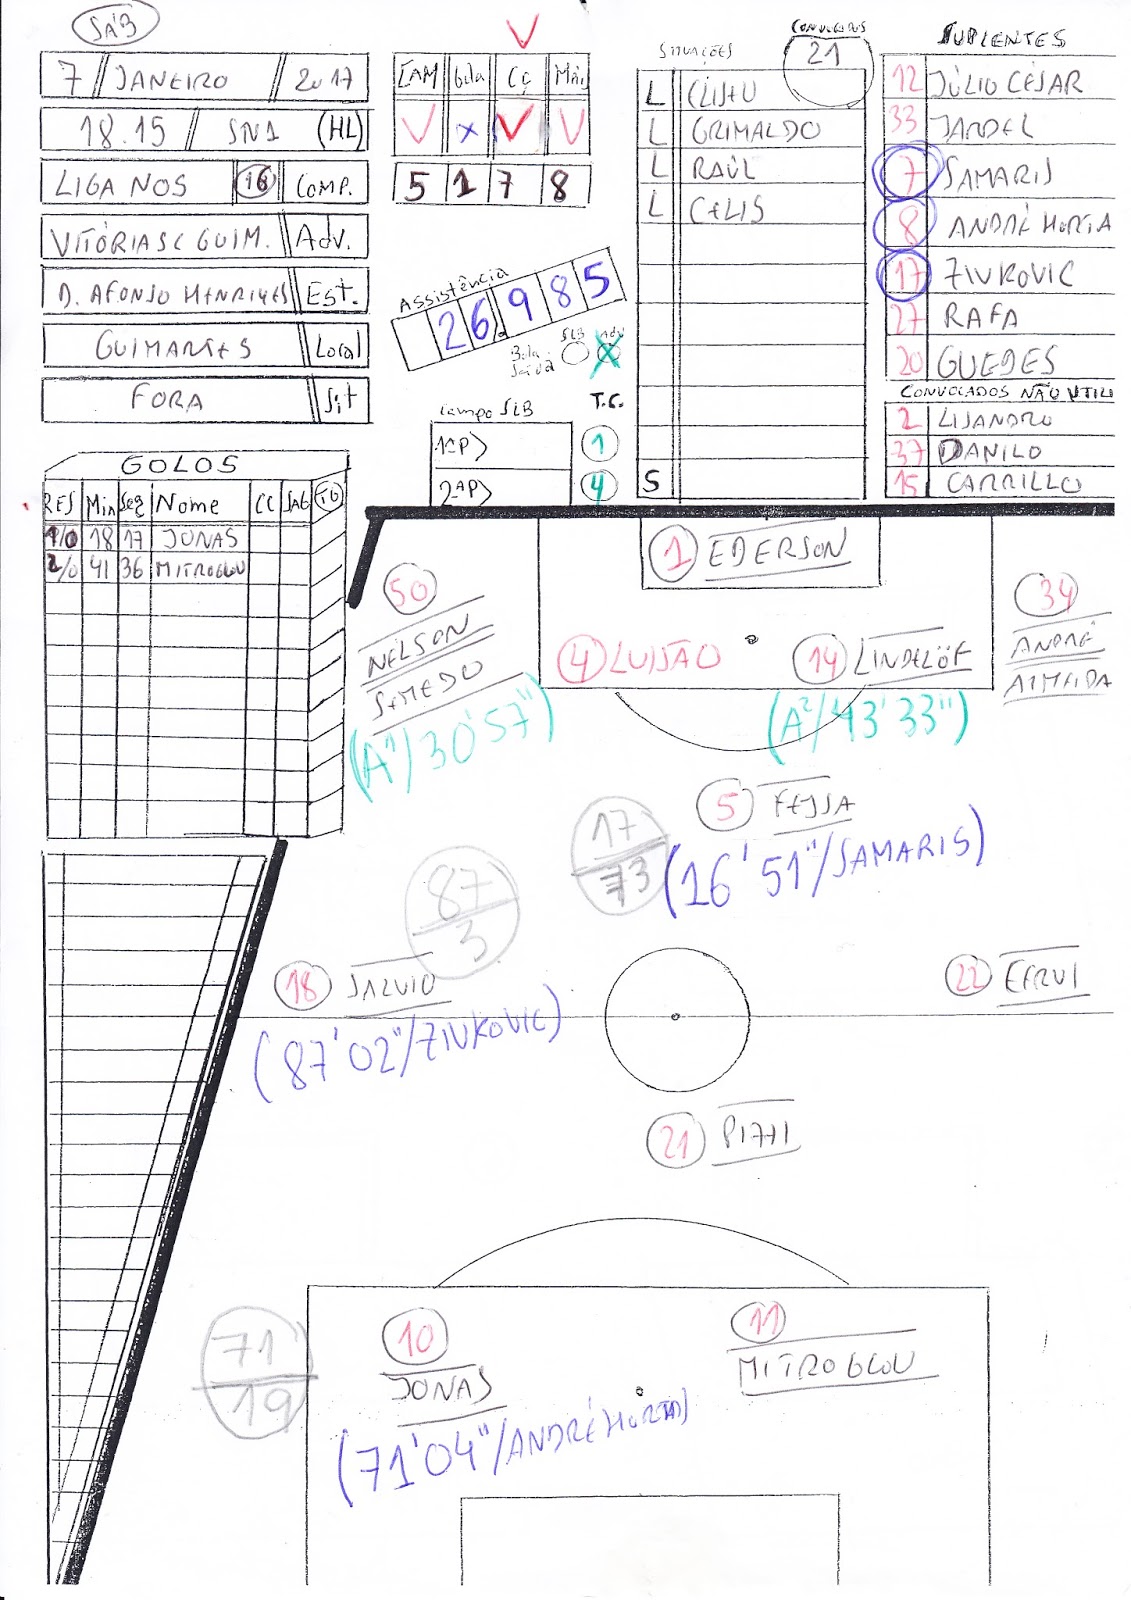 SÁB
7 / JANEIRO / 2017
18.15 / SN1 (HL)
LIGA NOS 16 COMP.
VITÓRIA SC GUIM. Adv.
D. AFONSO HENRIQUES Est.
GUIMARÃES Local
FORA Sit
CAM Gola CÇ
5 1 7 8
Assistência
26.985
Bola Saída SLB Adv
Campo SLB T.C.
1ªP> 1
2ªP> 4
SITUAÇÕES
CONVOCADOS
21
L
L GRIMALDO
L RAÚL
L CELIS
S
SUPLENTES
12 JÚLIO CÉSAR
33 JARDEL
7 SAMARIS
8 ANDRÉ HORTA
17 ZIVKOVIC
27 RAFA
20 GUEDES
CONVOCADOS NÃO UTILI
2 LISANDRO
37 DANILO
15 CARRILLO
GOLOS
RES Min Seg Nome CC TG
1/0 18 17 JONAS
2/0 41 36 MITROGLOU
1 EDERSON
50 NÉLSON SEMEDO
(A1/30'57")
4 LUISÃO
14 LINDELÖF
(A2/43'33")
34 ANDRÉ ALMEIDA
5 FEJSA
17/73
(16'51"/SAMARIS)
87/3
18 SALVIO
(87'02"/ZIVKOVIC)
22 CERVI
21 PIZZI
71/19
10 JONAS
(71'04"/ANDRÉ HORTA)
11 MITROGLOU